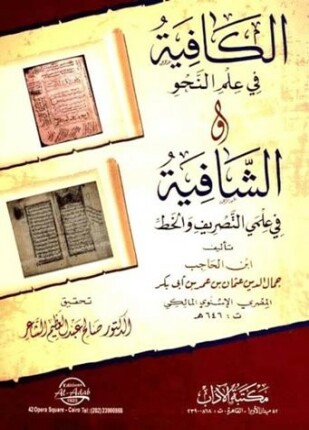 الكافية
في علم النحو
و
الشافية
في علمي التصريف والخط
تأليف
ابن الحاجب
جمال الدين عثمان بن عمر بن أبي بكر
المصري الإسنوي المالكي
ت : ٦٤٦ هـ
تحقيق
الدكتور صالح عبد العظيم الشاعر
Al-Adab
42 Opera Square - Cairo Tel: (202) 23900868
مكتبة الآداب
٤٢ ميدان الأوبرا - القاهرة - ت : ٢٣٩٠٠٨٦٨